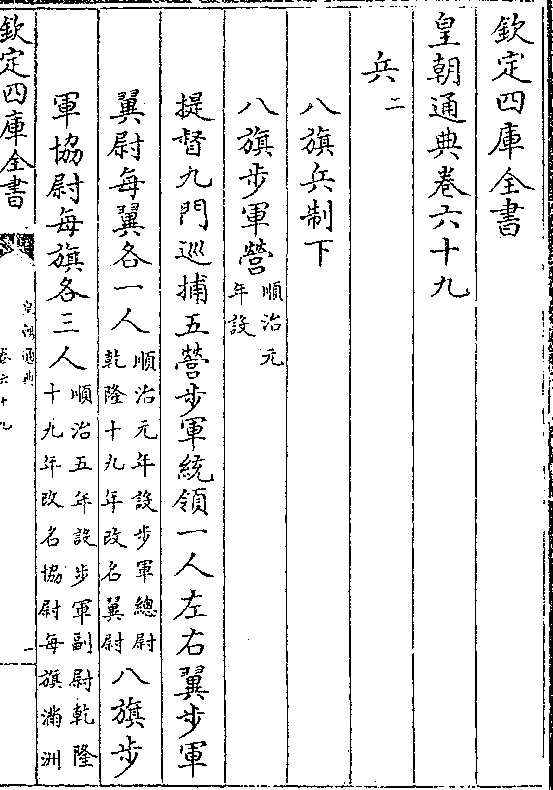 欽定四庫全書
皇朝通典卷六十九
兵二
八旗兵制下
八旗步軍營順治元年設
提督九門巡捕五營步軍統領一人左右翼步軍
翼尉每翼各一人順治元年設步軍總尉乾隆十九年改名翼尉八旗步
軍協尉每旗各三人順治五年設步軍副尉乾隆十九年改名協尉每旗滿洲
欽定四庫全書
皇朝通典
卷六十九
一